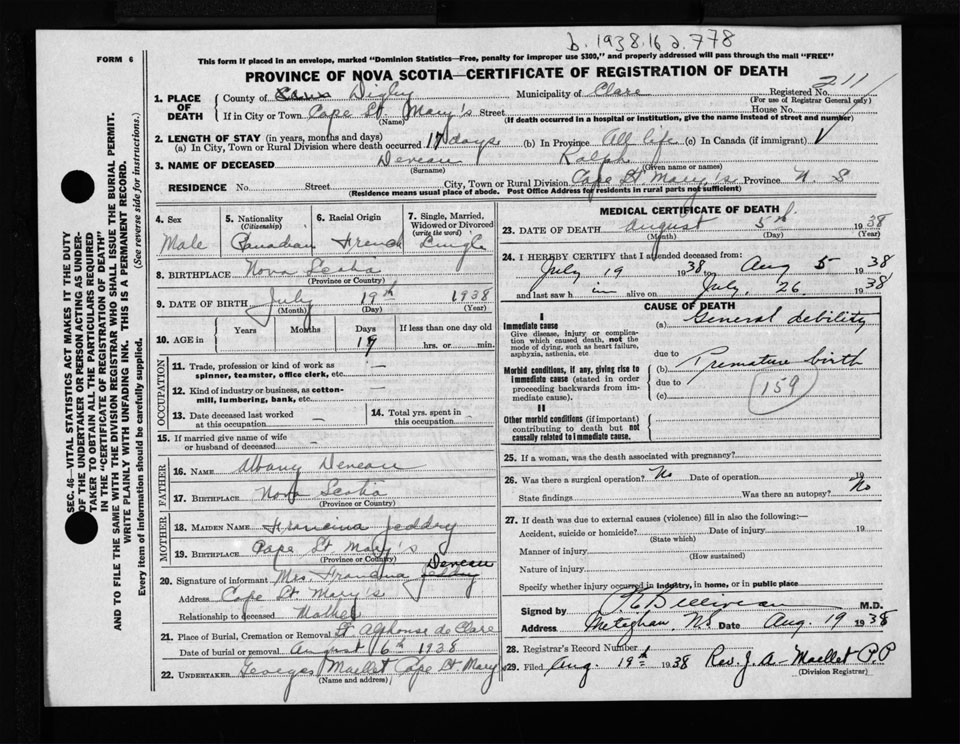 b. 1938. 16 2. 778
FORM 6
This form if placed in an envelope, marked "Dominion Statistics—Free, penalty for improper use $300," and properly addressed will pass through the mail "FREE"
PROVINCE OF NOVA SCOTIA—CERTIFICATE OF REGISTRATION OF DEATH
1. PLACE OF DEATH
County of Digby Municipality of Clare Registered No. 211
(For use of Registrar General only)
If in City or Town Cape St. Mary's Street House No.
(Name) (If death occurred in a hospital or institution, give the name instead of street and number)
2. LENGTH OF STAY (in years, months and days)
(a) In City, Town or Rural Division where death occurred 17 days (b) In Province All life (c) In Canada (if immigrant)
3. NAME OF DECEASED Deveau Ralph
(Surname) (Given name or names)
RESIDENCE No. Street City, Town or Rural Division Cape St. Mary's Province N. S
(Residence means usual place of abode. Post Office Address for residents in rural parts not sufficient)
4. Sex Male
5. Nationality (Citizenship) Canadian
6. Racial Origin French
7. Single, Married, Widowed or Divorced (write the word) Single
8. BIRTHPLACE Nova Scotia
(Province or Country)
9. DATE OF BIRTH July 19th 1938
(Month) (Day) (Year)
10. AGE in Years Months Days 17 If less than one day old hrs. or min.
OCCUPATION
11. Trade, profession or kind of work as spinner, teamster, office clerk, etc. —
12. Kind of industry or business, as cotton-mill, lumbering, bank, etc. —
13. Date deceased last worked at this occupation —
14. Total yrs. spent in this occupation —
15. If married give name of wife or husband of deceased —
FATHER
16. NAME Albany Deveau
17. BIRTHPLACE Nova Scotia
(Province or Country)
MOTHER
18. MAIDEN NAME Francina Jeddry
19. BIRTHPLACE Cape St. Mary's
(Province or Country)
20. Signature of informant Mrs Francina Jeddry Deveau
Address Cape St. Mary's
Relationship to deceased Mother
21. Place of Burial, Cremation or Removal St. Alphonse de Clare
Date of burial or removal August 6th 1938
22. UNDERTAKER Georges Maillet Cape St. Mary's
(Name and address)
MEDICAL CERTIFICATE OF DEATH
23. DATE OF DEATH August 5th 1938
(Month) (Day) (Year)
24. I HEREBY CERTIFY that I attended deceased from:
July 19 1938 to Aug 5 1938
and last saw h im alive on July, 26 1938
CAUSE OF DEATH
I
Immediate cause
Give disease, injury or complication which caused death, not the mode of dying, such as heart failure, asphyxia, asthenia, etc
(a) General debility
due to
Morbid conditions, if any, giving rise to immediate cause (stated in order proceeding backwards from immediate cause).
(b) Premature birth
due to
(c)
159
II
Other morbid conditions (if important) contributing to death but not causally related to immediate cause.
25. If a woman, was the death associated with pregnancy?
26. Was there a surgical operation? No Date of operation 19
State findings Was there an autopsy? No
27. If death was due to external causes (violence) fill in also the following:—
Accident, suicide or homicide? Date of injury 19
(State which)
Manner of injury
(How sustained)
Nature of injury
Specify whether injury occurred in industry, in home, or in public place
Signed by P. E. Belliveau M.D.
Address Meteghan, N.S Date Aug. 19 1938
28. Registrar's Record Number
29. Filed Aug. 19th 1938 Rev. J. A. Maillet P.P
(Division Registrar)
SEC. 46—VITAL STATISTICS ACT MAKES IT THE DUTY
OF THE UNDERTAKER OR PERSON ACTING AS UNDER-
TAKER TO OBTAIN ALL THE PARTICULARS REQUIRED
IN THE "CERTIFICATE OF REGISTRATION OF DEATH"
AND TO FILE THE SAME WITH THE DIVISION REGISTRAR WHO SHALL ISSUE THE BURIAL PERMIT.
WRITE PLAINLY WITH UNFADING INK. THIS IS A PERMANENT RECORD.
Every item of information should be carefully supplied. (See reverse side for instructions.)